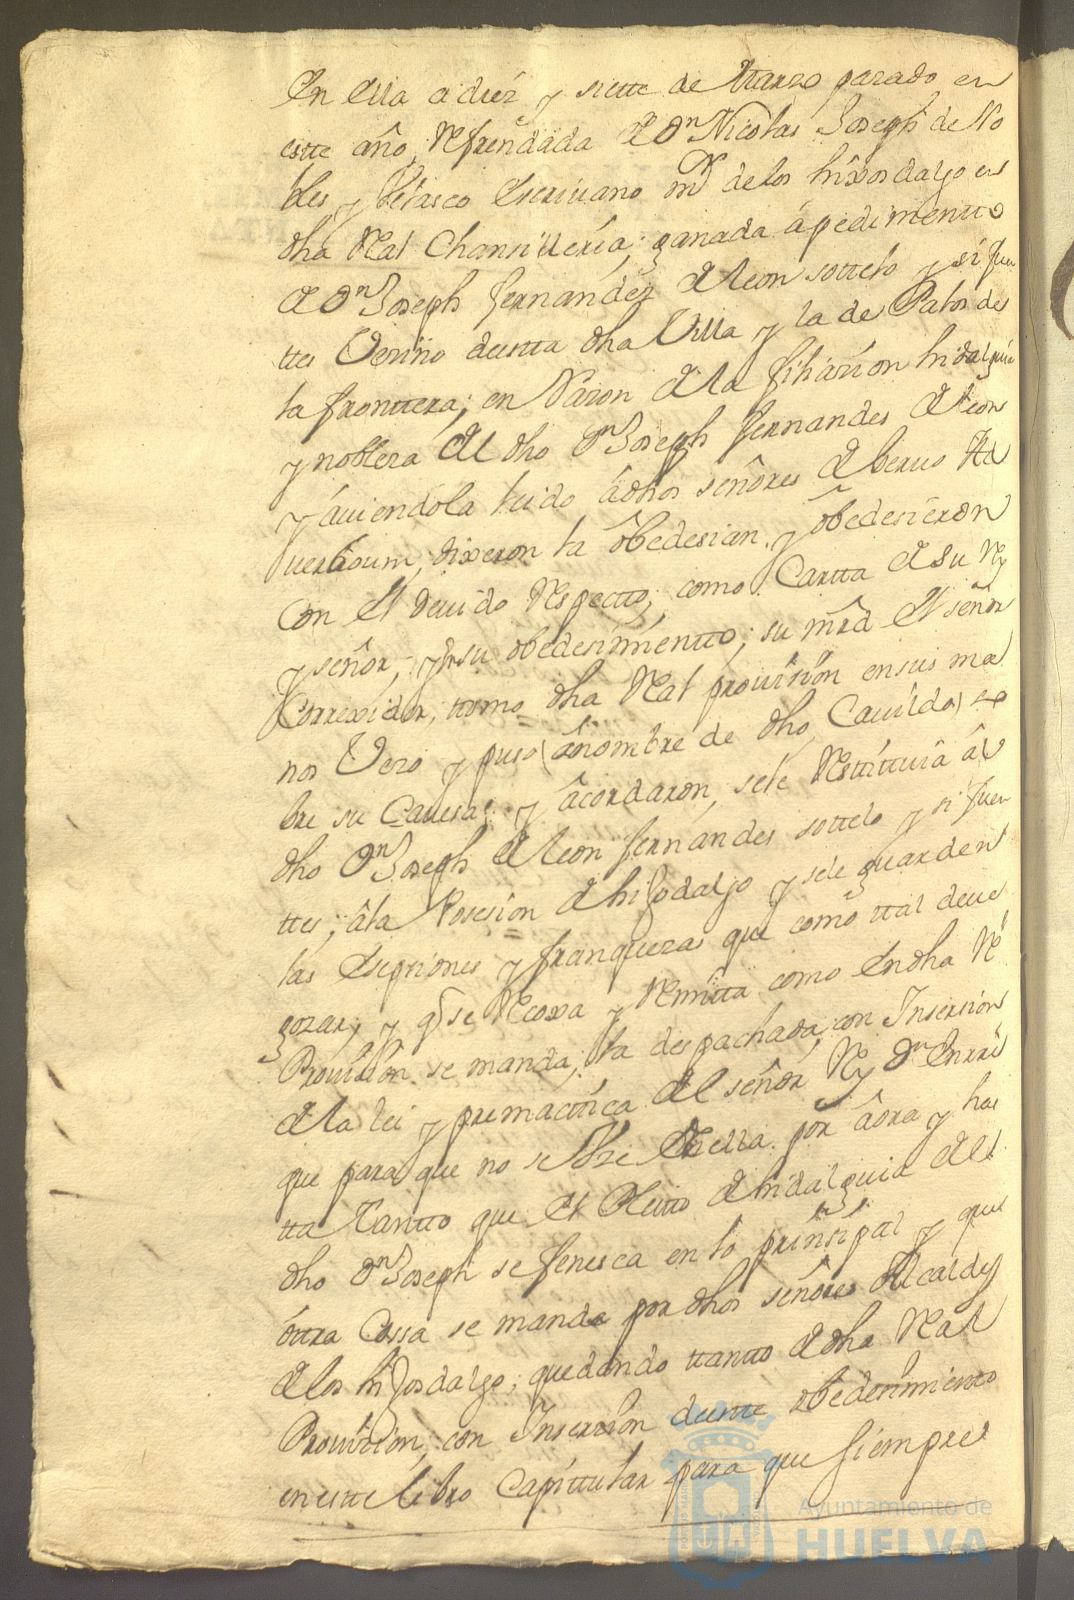 En ella a diez y siette de Marzo pasado en
estte año, Refrendada de Dn Nicolas Joseph de No
bles, y Velasco Escriuano mr de los hixosdalgo en
dha Real Chansilleria; ganada â pedimentto
de Dn Joseph fernandez de leon sottelo y sifuen
tes Vezino destta dha Villa y la de Palos de
la fronttera; en Razon de la filiazion hidalguia
y nobleza del dho Dn Joseph fernandes de leon
y âuiendola leido âdhos señores de beruo Ad
uerboum, dixeron la ôbedesian y ôbedesieron
con el deuido Respectto; como Cartta de su Rey
y señor; y en su obedesimientto; su mrd el señor
Correxidor, ttomo dha Real prouision en sus ma
nos Veso y puso (ânombre de dho Cauildo) so
bre su Cauesa; y âcordaron, sele Resttittuia âl
dho Dn Joseph de leon fernandes sottelo y sifuen
ttes; âla Posesion de hijodalgo y sele guarden
las Esepsiones y franquezas que como ttal deue
gozar; y qe se Recoxa y Remitta como En dha Rl
Prouision se manda; la despachada con Insersion
de la lei y premacttica del señor Rey Dn Enrri
que para que no se Vse de ella por âora y has
tta ttantto que el Pleitto de hidalguia del
dho Dn Joseph se fenesca en lo prinsipal y que
ôttra Cossa se mande por dhos señores Alcaldes
de los hijosdalgo; quedando ttantto de dha Real
Prouision; con Insersion destte obedesimientto
en estte libro Capittular para que siempre
Ayuntamiento de
HUELVA